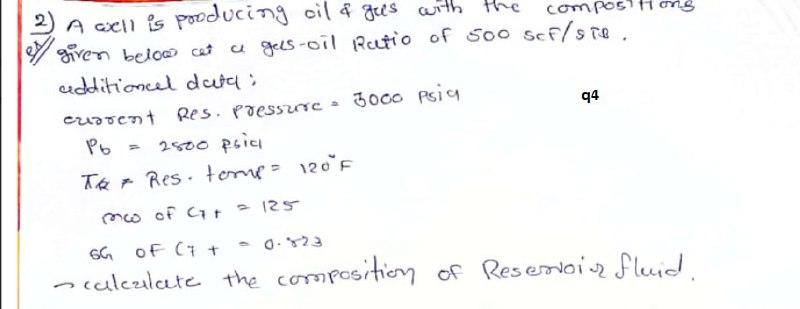 2) A well is producing oil & gas with the compositions
given below at a gas-oil Ratio of 500 scf/STB.
additional data:
current Res. pressure = 3000 psia
q4
Pb = 2800 psia
TR = Res. temp = 120°F
mw of C7+ = 125
SG of C7+ = 0.823
→ calculate the composition of Reservoir fluid.